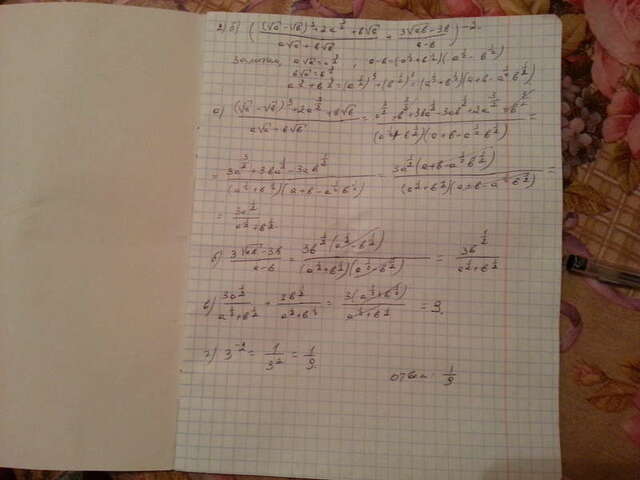 2) б) ( ((√a - √b)³ + 2a^(3/2) + b√b) / (a√a + b√b) + (3√ab - 3b) / (a-b) )^(-2) =
Заметим, a√a = a^(3/2) ; a-b = (a^(1/2) + b^(1/2))(a^(1/2) - b^(1/2))
b√b = b^(3/2)
a^(3/2) + b^(3/2) = (a^(1/2))³ + (b^(1/2))³ = (a^(1/2) + b^(1/2))(a + b - a^(1/2) b^(1/2))
а) ((√a - √b)³ + 2a^(3/2) + b√b) / (a√a + b√b) = (a^(3/2) - b^(3/2) + 3ba^(1/2) - 3ab^(1/2) + 2a^(3/2) + b^(3/2)) / ((a^(1/2) + b^(1/2))(a + b - a^(1/2) b^(1/2))) =
= (3a^(3/2) + 3ba^(1/2) - 3ab^(1/2)) / ((a^(1/2) + b^(1/2))(a + b - a^(1/2) b^(1/2))) = 3a^(1/2)(a + b - a^(1/2) b^(1/2)) / ((a^(1/2) + b^(1/2))(a + b - a^(1/2) b^(1/2))) =
= 3a^(1/2) / (a^(1/2) + b^(1/2))
б) (3√ab - 3b) / (a-b) = 3b^(1/2)(a^(1/2) - b^(1/2)) / ((a^(1/2) + b^(1/2))(a^(1/2) - b^(1/2))) = 3b^(1/2) / (a^(1/2) + b^(1/2))
в) 3a^(1/2) / (a^(1/2) + b^(1/2)) + 3b^(1/2) / (a^(1/2) + b^(1/2)) = 3(a^(1/2) + b^(1/2)) / (a^(1/2) + b^(1/2)) = 3.
г) 3^(-2) = 1/3² = 1/9.
ответ: 1/9